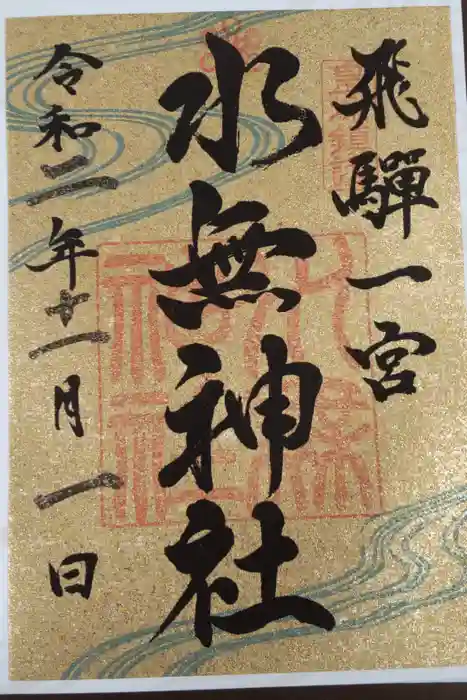 飛騨一宮
水無神社
令和二年十一月一日